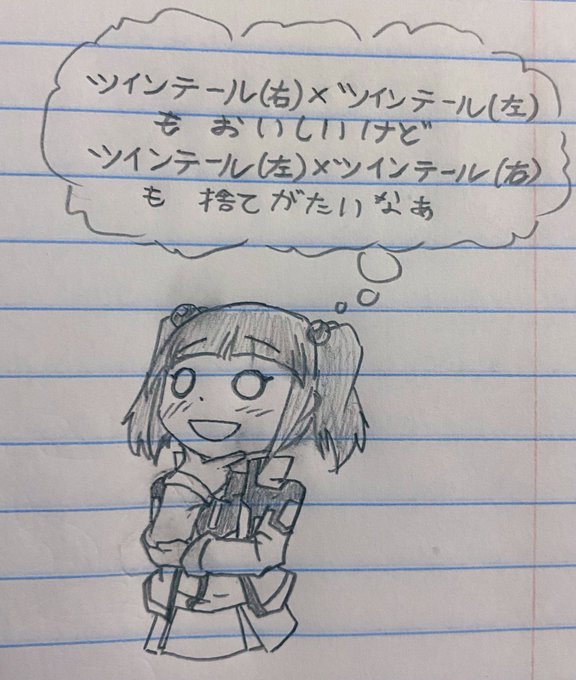 ツインテール(右)×ツインテール(左)
も おいしいけど
ツインテール(左)×ツインテール(右)
も 捨てがたいなぁ